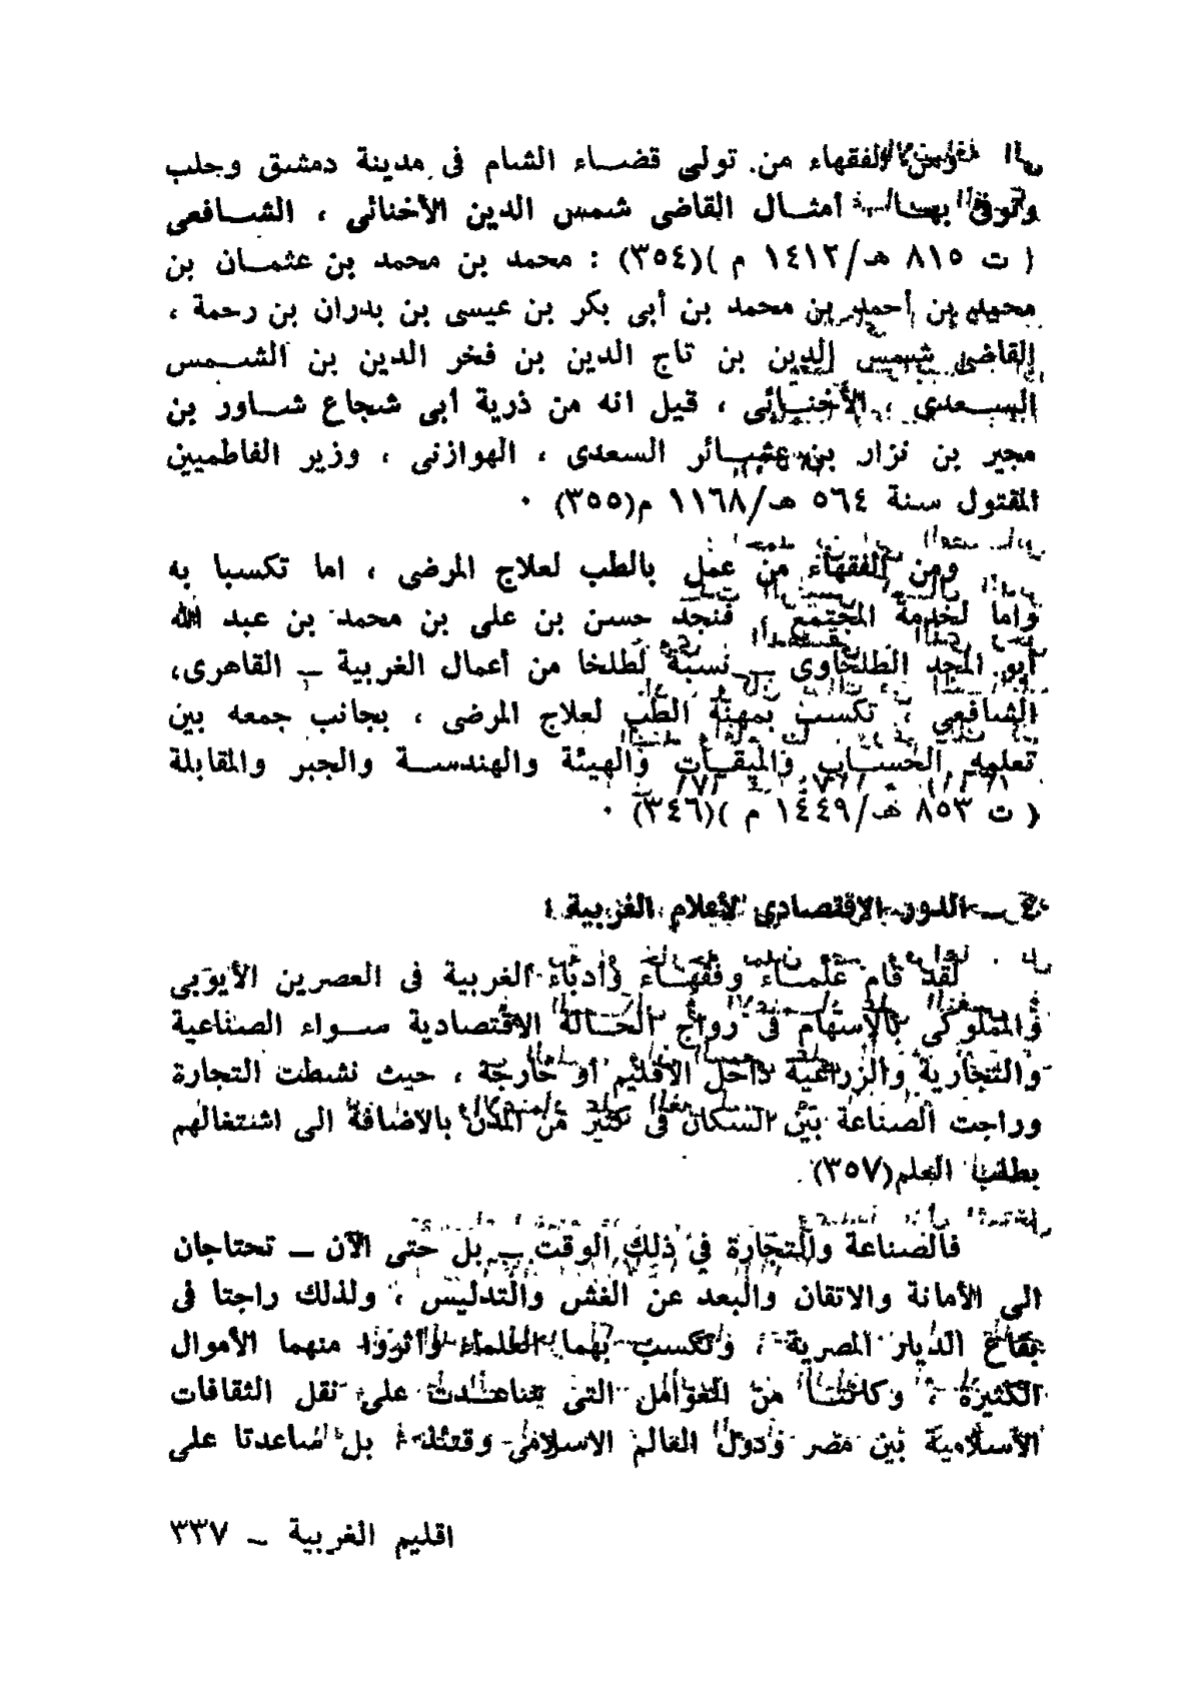 ومن الفقهاء من تولى قضاء الشام فى مدينة دمشق وحلب
وتوفى بهـا أمثـال القاضى شمس الدين الأخنائى ، الشـافعى
( ت ٨١٥ هـ/١٤١٢ م )(٣٥٤) : محمد بن محمد بن عثمـان بن
محمد بن أحمد بن محمد بن أبى بكر بن عيسى بن بدران بن رحمة ،
القاضى شمس الدين بن تاج الدين بن فخر الدين بن الشـمس
السـعدى ، الأخنـائى ، قيل انه من ذرية أبى شجاع شـاور بن
مجير بن نزار بن عشـائر السعدى ، الهوازنى ، وزير الفاطميين
المقتول سنة ٥٦٤ هـ/١١٦٨ م(٣٥٥) ٠
ومن الفقهاء من عمل بالطب لعلاج المرضى ، اما تكسبا به
واما لخدمة المجتمع ، فنجد حسن بن على بن محمد بن عبد الله
أبو المجد الطلخاوى ــ نسبة لطلخا من أعمال الغربية ــ القاهرى،
الشافعى ، تكسب بمهنة الطب لعلاج المرضى ، بجانب جمعه بين
تعلمه الحسـاب والميقـات والهيئة والهندسـة والجبر والمقابلة
( ت ٨٥٣ هـ/١٤٤٩ م )(٣٤٦) ٠
٤ ــ الدور الاقتصادى لأعلام الغربية :
لقد قام علمـاء وفقهـاء وأدباء الغربية فى العصرين الأيوبى
والمملوكى بالاسهام فى رواج الحـالة الاقتصادية سـواء الصناعية
والتجارية والزراعية داخل الاقليم أو خارجه ، حيث نشطت التجارة
وراجت الصناعة بين السكان فى كثير من المدن بالاضافة الى اشتغالهم
بطلب العلم(٣٥٧) .
فالصناعة والتجارة فى ذلك الوقت ــ بل حتى الآن ــ تحتاجان
الى الأمانة والاتقان والبعد عن الغش والتدليس ، ولذلك راجتا فى
بقاع الديار المصرية ، وتكسب بهما العلماء وأثروا منهما الأموال
الكثيرة ، وكانتـا من العوامل التى سـاعدت على نقل الثقافات
الاسلامية بين مصر ودول العالم الاسلامى وقتئذ ، بل ساعدتا على
اقليم الغربية ــ ٣٣٧